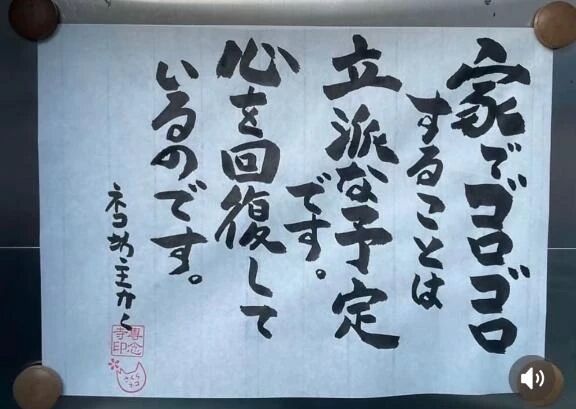 家でゴロゴロ
することは
立派な予定
です。
心を回復して
いるのです。
ネコ坊主かく
専念
寺印
さくら
ネコ